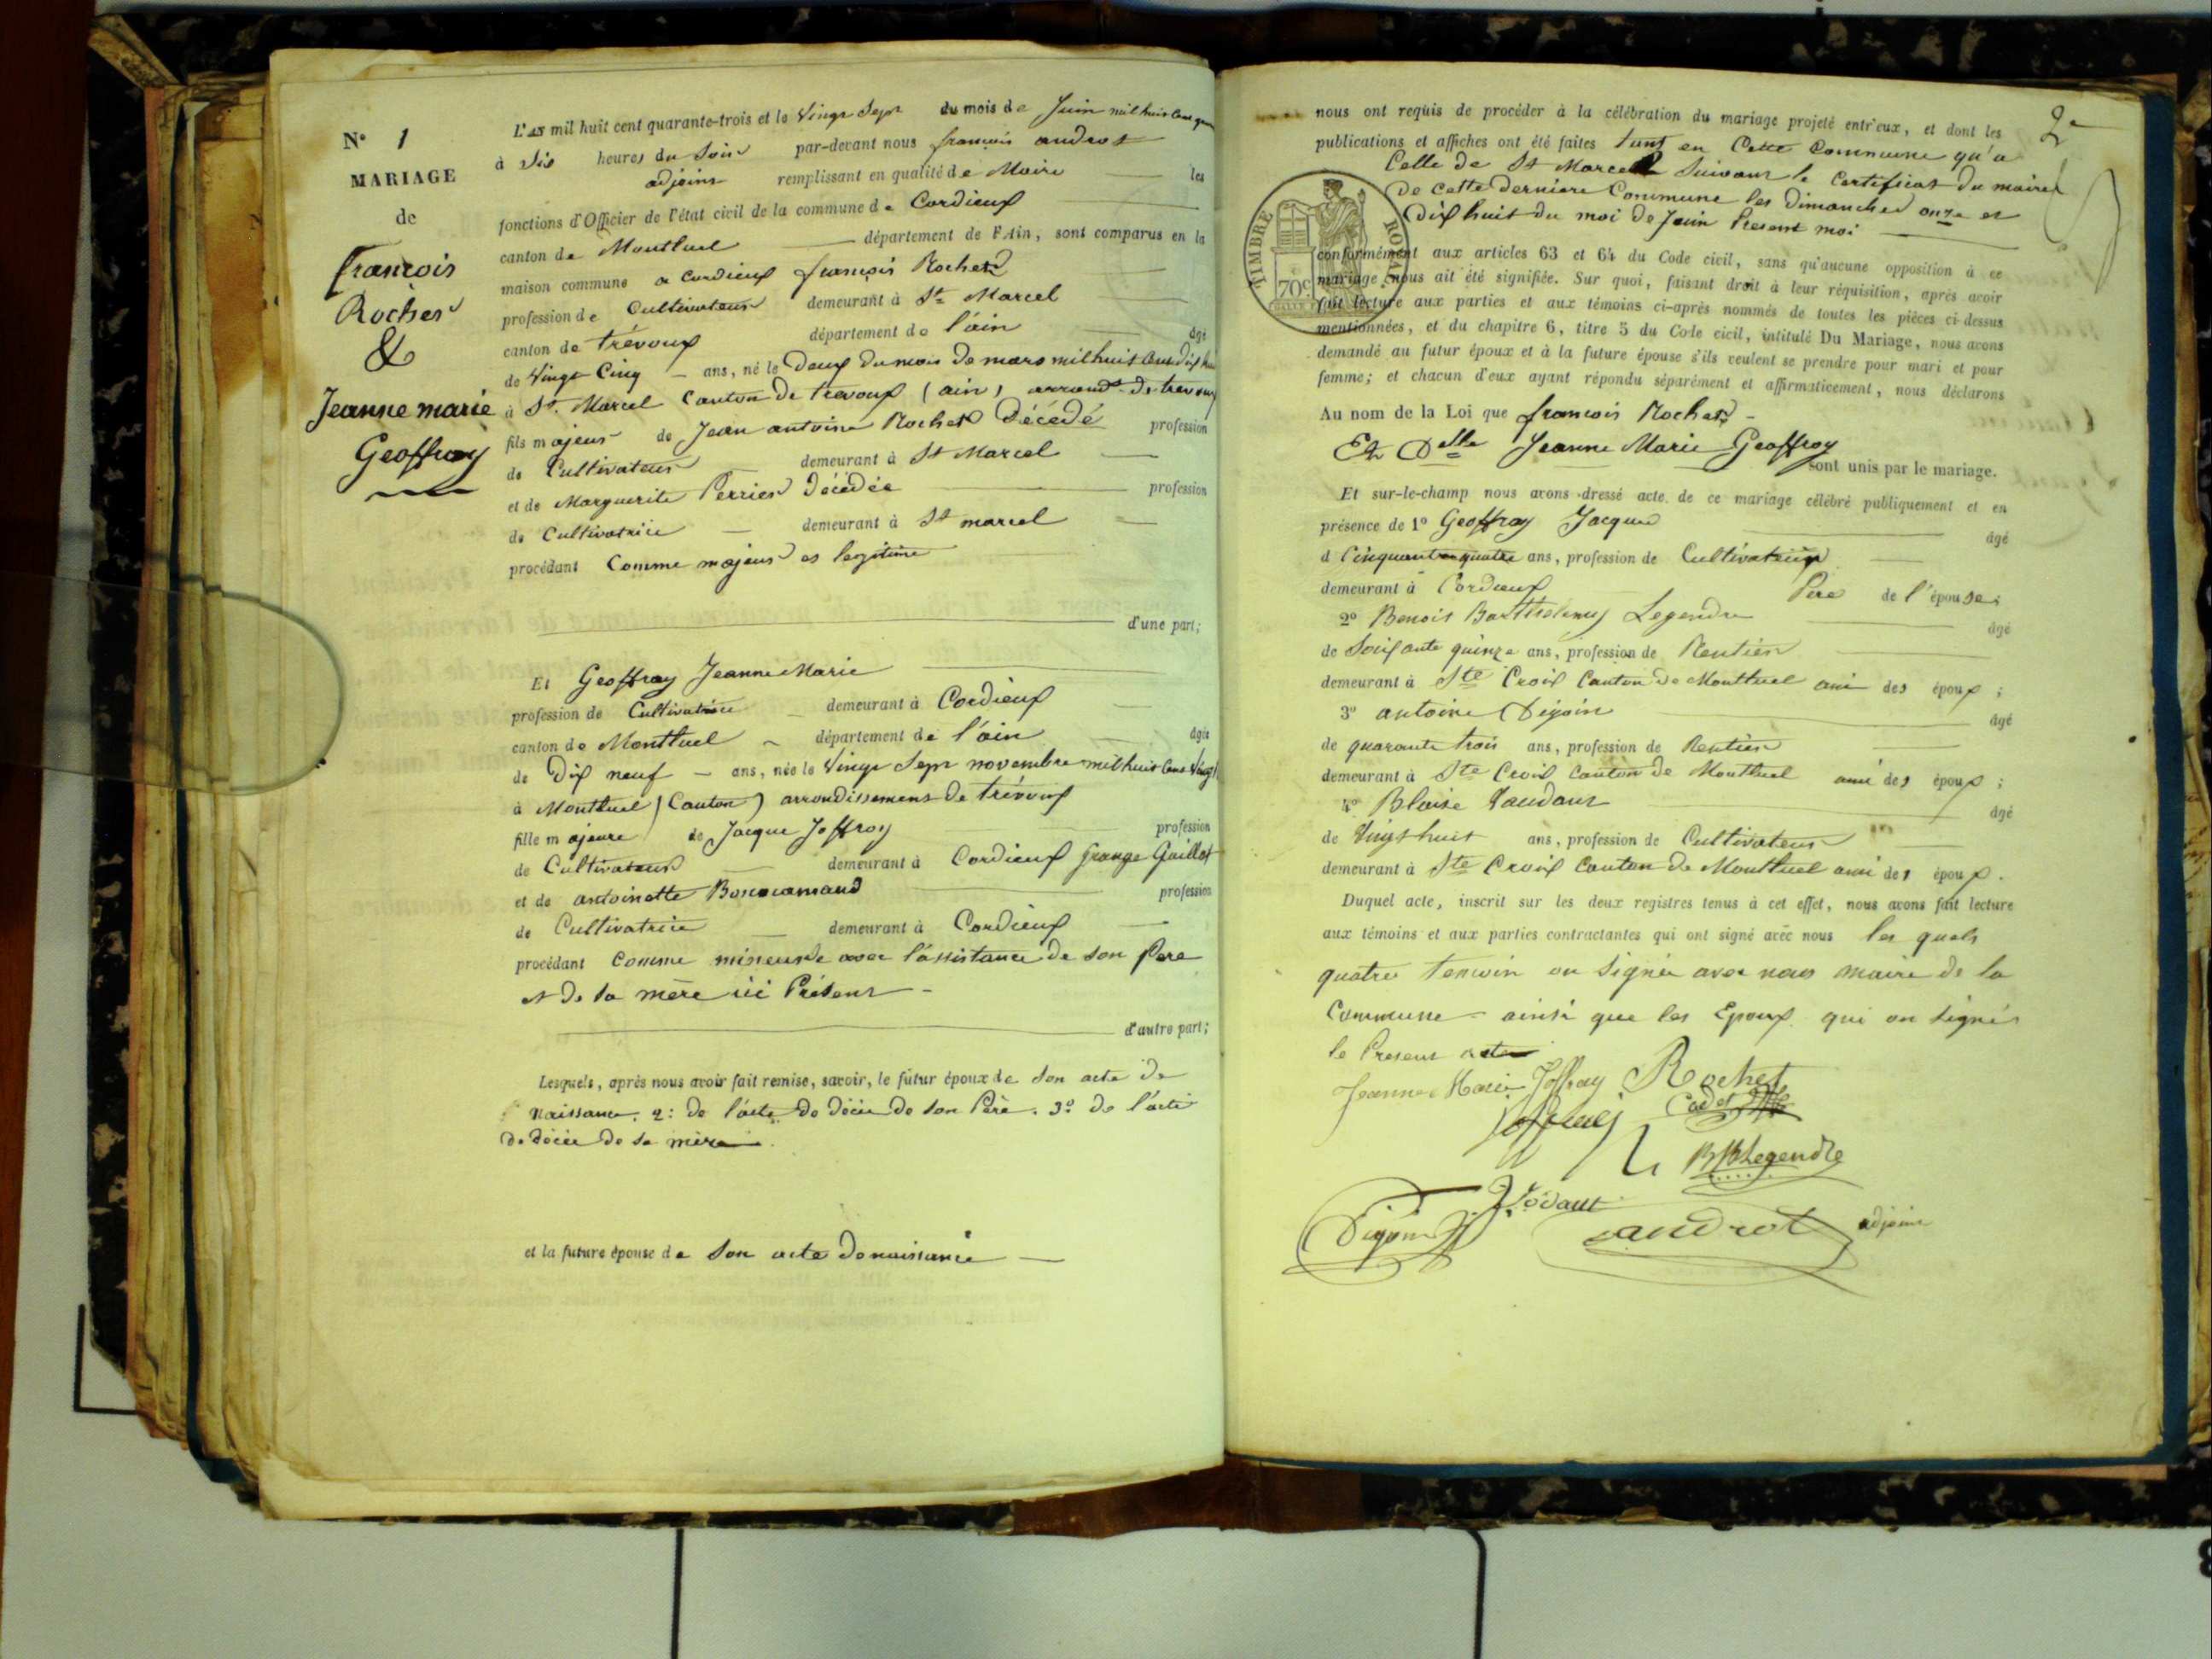 N° 1
MARIAGE
de
francois
Rocher
&
Jeanne marie
Geoffray
L'an mil huit cent quarante-trois et le Vingt Sept du mois de Juin mil huit Cent
à Six heures du Soir par-devant nous françois androt
adjoint remplissant en qualité de Maire les
fonctions d'Officier de l'état civil de la commune de Cordieux
canton de Montluel département de l'Ain, sont comparus en la
maison commune a cordieux françois Rochet
profession de Cultivateur demeurant à St Marcel
canton de trévoux département de l'ain âgé
de Vingt Cinq ans, né le Deux du mois de mars mil huit Cent dix
à St. Marcel Canton de trevoux (ain) arrond.t de trevoux
fils majeur de Jean antoine Rochet Décédé profession
de Cultivateur demeurant à St Marcel
et de Marguerite Perrier Décédée profession
de Cultivatrice demeurant à St marcel
procédant Comme majeur et legitime
d'une part;
Et Geoffray Jeanne Marie
profession de Cultivatrice demeurant à Cordieux
canton de Montluel département de l'ain âgée
de Dix neuf ans, née le Vingt Sept novembre mil huit Cent Vingt
à Montluel (Canton) arrondissement de trévoux
fille majeure de Jacque Joffroy profession
de Cultivateur demeurant à Cordieux grange Guillot
et de antoinette profession
de Cultivatrice demeurant à Cordieux
procédant Comme mineure avec l'assistance de son Pere
et de sa mère ici Présent
d'autre part;
Lesquels, après nous avoir fait remise, savoir, le futur époux de Son acte de
Naissance. 2: de l'acte de décè de son Père. 3° de l'acte
de décè de sa mère.
et la future épouse de Son acte de naissance
2e
nous ont requis de procéder à la célébration du mariage projeté entr'eux, et dont les
publications et affiches ont été faites tant en Cette Commune qu'a
Celle de St Marcel Suivant le Certificat du maire
de cette derniere Commune les dimanches onze et
Dix huit du moi de Juin Present moi
TIMBRE ROYAL
70c
conformément aux articles 63 et 64 du Code civil, sans qu'aucune opposition à ce
mariage nous ait été signifiée. Sur quoi, faisant droit à leur réquisition, après avoir
fait lecture aux parties et aux témoins ci-après nommés de toutes les pièces ci-dessus
mentionnées, et du chapitre 6, titre 5 du Code civil, intitulé Du Mariage, nous avons
demandé au futur époux et à la future épouse s'ils veulent se prendre pour mari et pour
femme; et chacun d'eux ayant répondu séparément et affirmativement, nous déclarons
Au nom de la Loi que francois Rochet
Et Delle Jeanne Marie Geoffroy
sont unis par le mariage.
Et sur-le-champ nous avons dressé acte de ce mariage célébré publiquement et en
présence de 1° Geoffray Jacque âgé
d Cinquante quatre ans, profession de Cultivateur
demeurant à Cordieux Père de l'épouse;
2° Benoit Barthelemy Legendre âgé
de Soixante quinze ans, profession de Rentier
demeurant à Ste Croix Canton de Montluel ami des époux;
3° antoine Digoin âgé
de quarante trois ans, profession de Rentier
demeurant à Ste Croix Canton de Montluel ami des époux;
4° Blaise Vaudant âgé
de Vingt huit ans, profession de Cultivateur
demeurant à Ste Croix Canton de Montluel ami des époux.
Duquel acte, inscrit sur les deux registres tenus à cet effet, nous avons fait lecture
aux témoins et aux parties contractantes qui ont signé avec nous les quels
quatre temoin on Signé avec nous maire de la
Commune ainsi que les Epoux qui on signés
le Present acte
Jeanne Marie Joffray Rochet
Cadet
BB Legendre
Digoin Vodant
androt adjoint